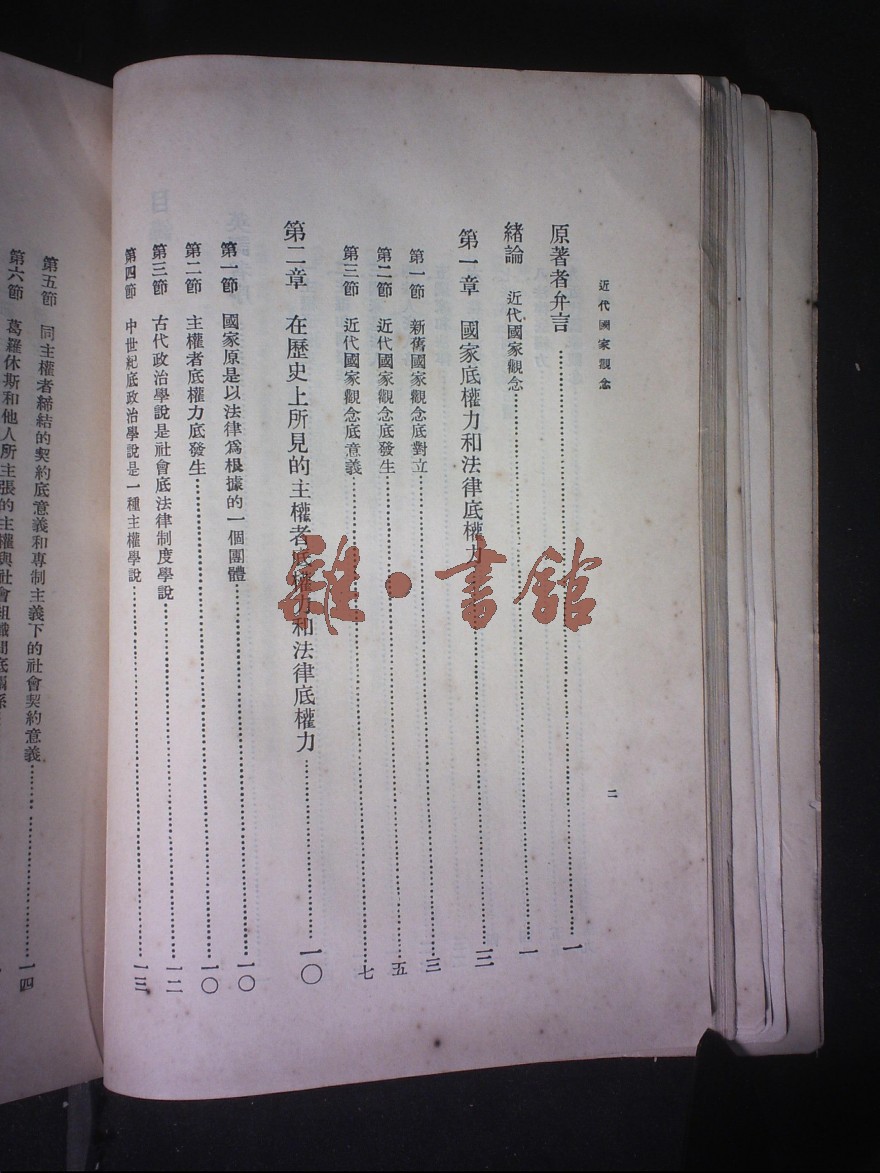 近代國家觀念
二
原著者弁言……一
緒論 近代國家觀念……一
第一章 國家底權力和法律底權力……三
第一節 新舊國家觀念底對立……三
第二節 近代國家觀念底發生……五
第三節 近代國家觀念底意義……七
第二章 在歷史上所見的主權者底權力和法律底權力……一〇
第一節 國家原是以法律爲根據的一個團體……一〇
第二節 主權者底權力底發生……一〇
第三節 古代政治學說是社會底法律制度學說……一二
第四節 中世紀底政治學說是一種主權學說……一三
第五節 同主權者締結的契約底意義和專制主義下的社會契約意義……一四
第六節 葛羅休斯和他人所主張的主權與社會組織間底關係……
雜·書館